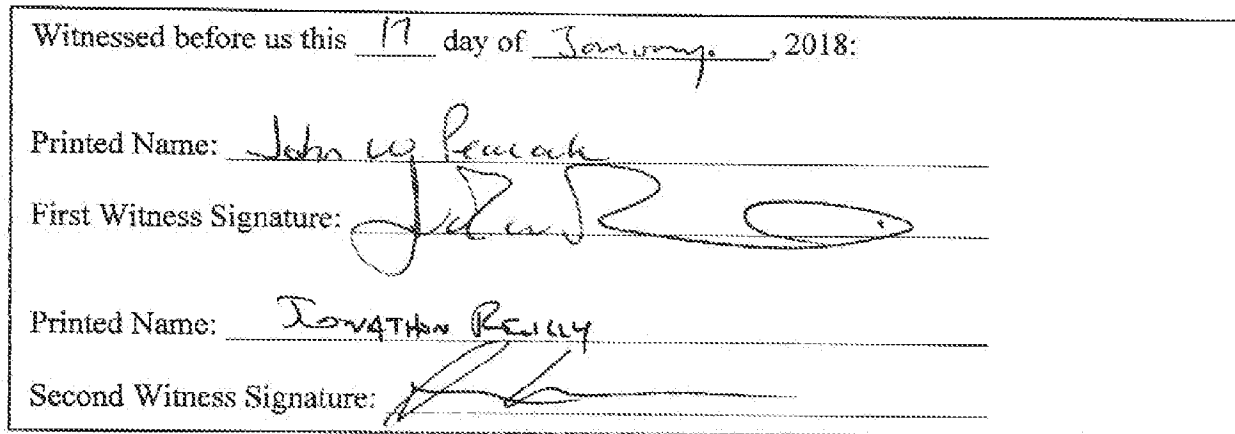 Witnessed before us this 17 day of January, 2018:
Printed Name: John W Peacock
First Witness Signature:
Printed Name: JONATHON REILLY
Second Witness Signature: